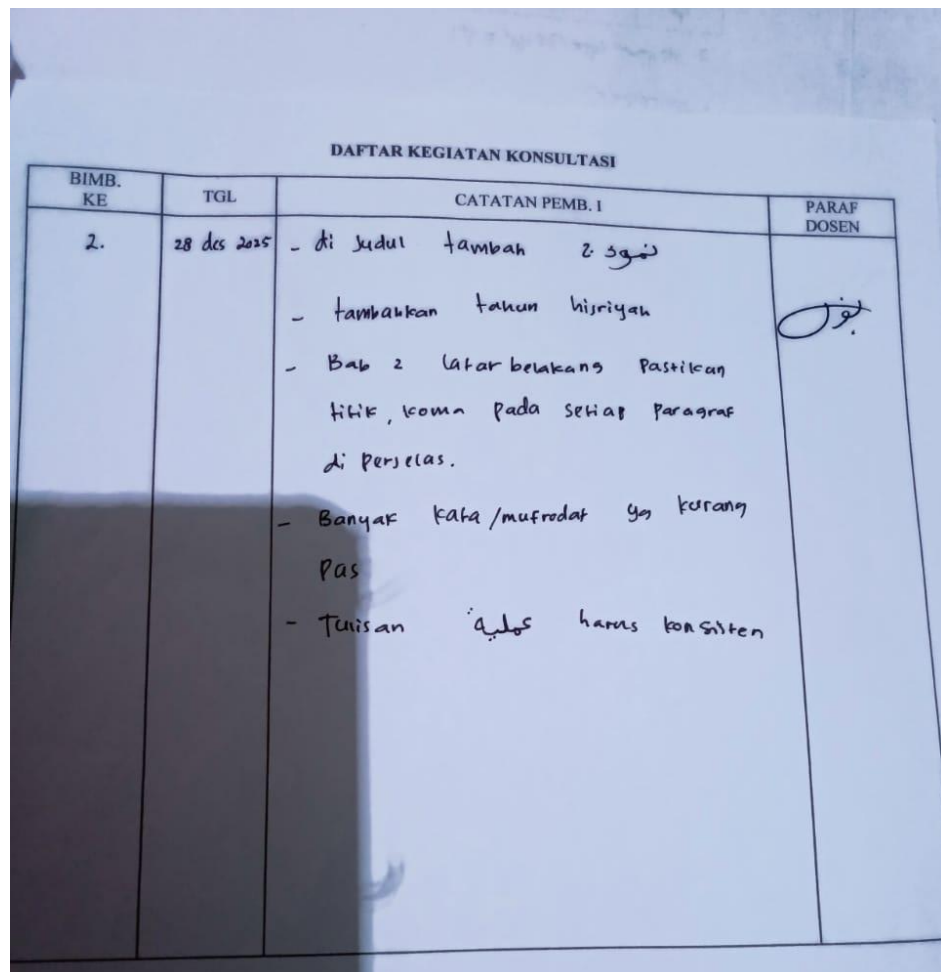 DAFTAR KEGIATAN KONSULTASI
BIMB. KE
TGL
CATATAN PEMB. 1
PARAF DOSEN
2.
28 des 2025
- di Judul tambah
- tambahkan tahun hijriyah
- Bab 2 latar belakang Pastikan
titik, koma pada setiap Paragraf
di Perjelas.
- Banyak kata/mufrodat yg kurang
Pas
- Tulisan عملية harus konsisten